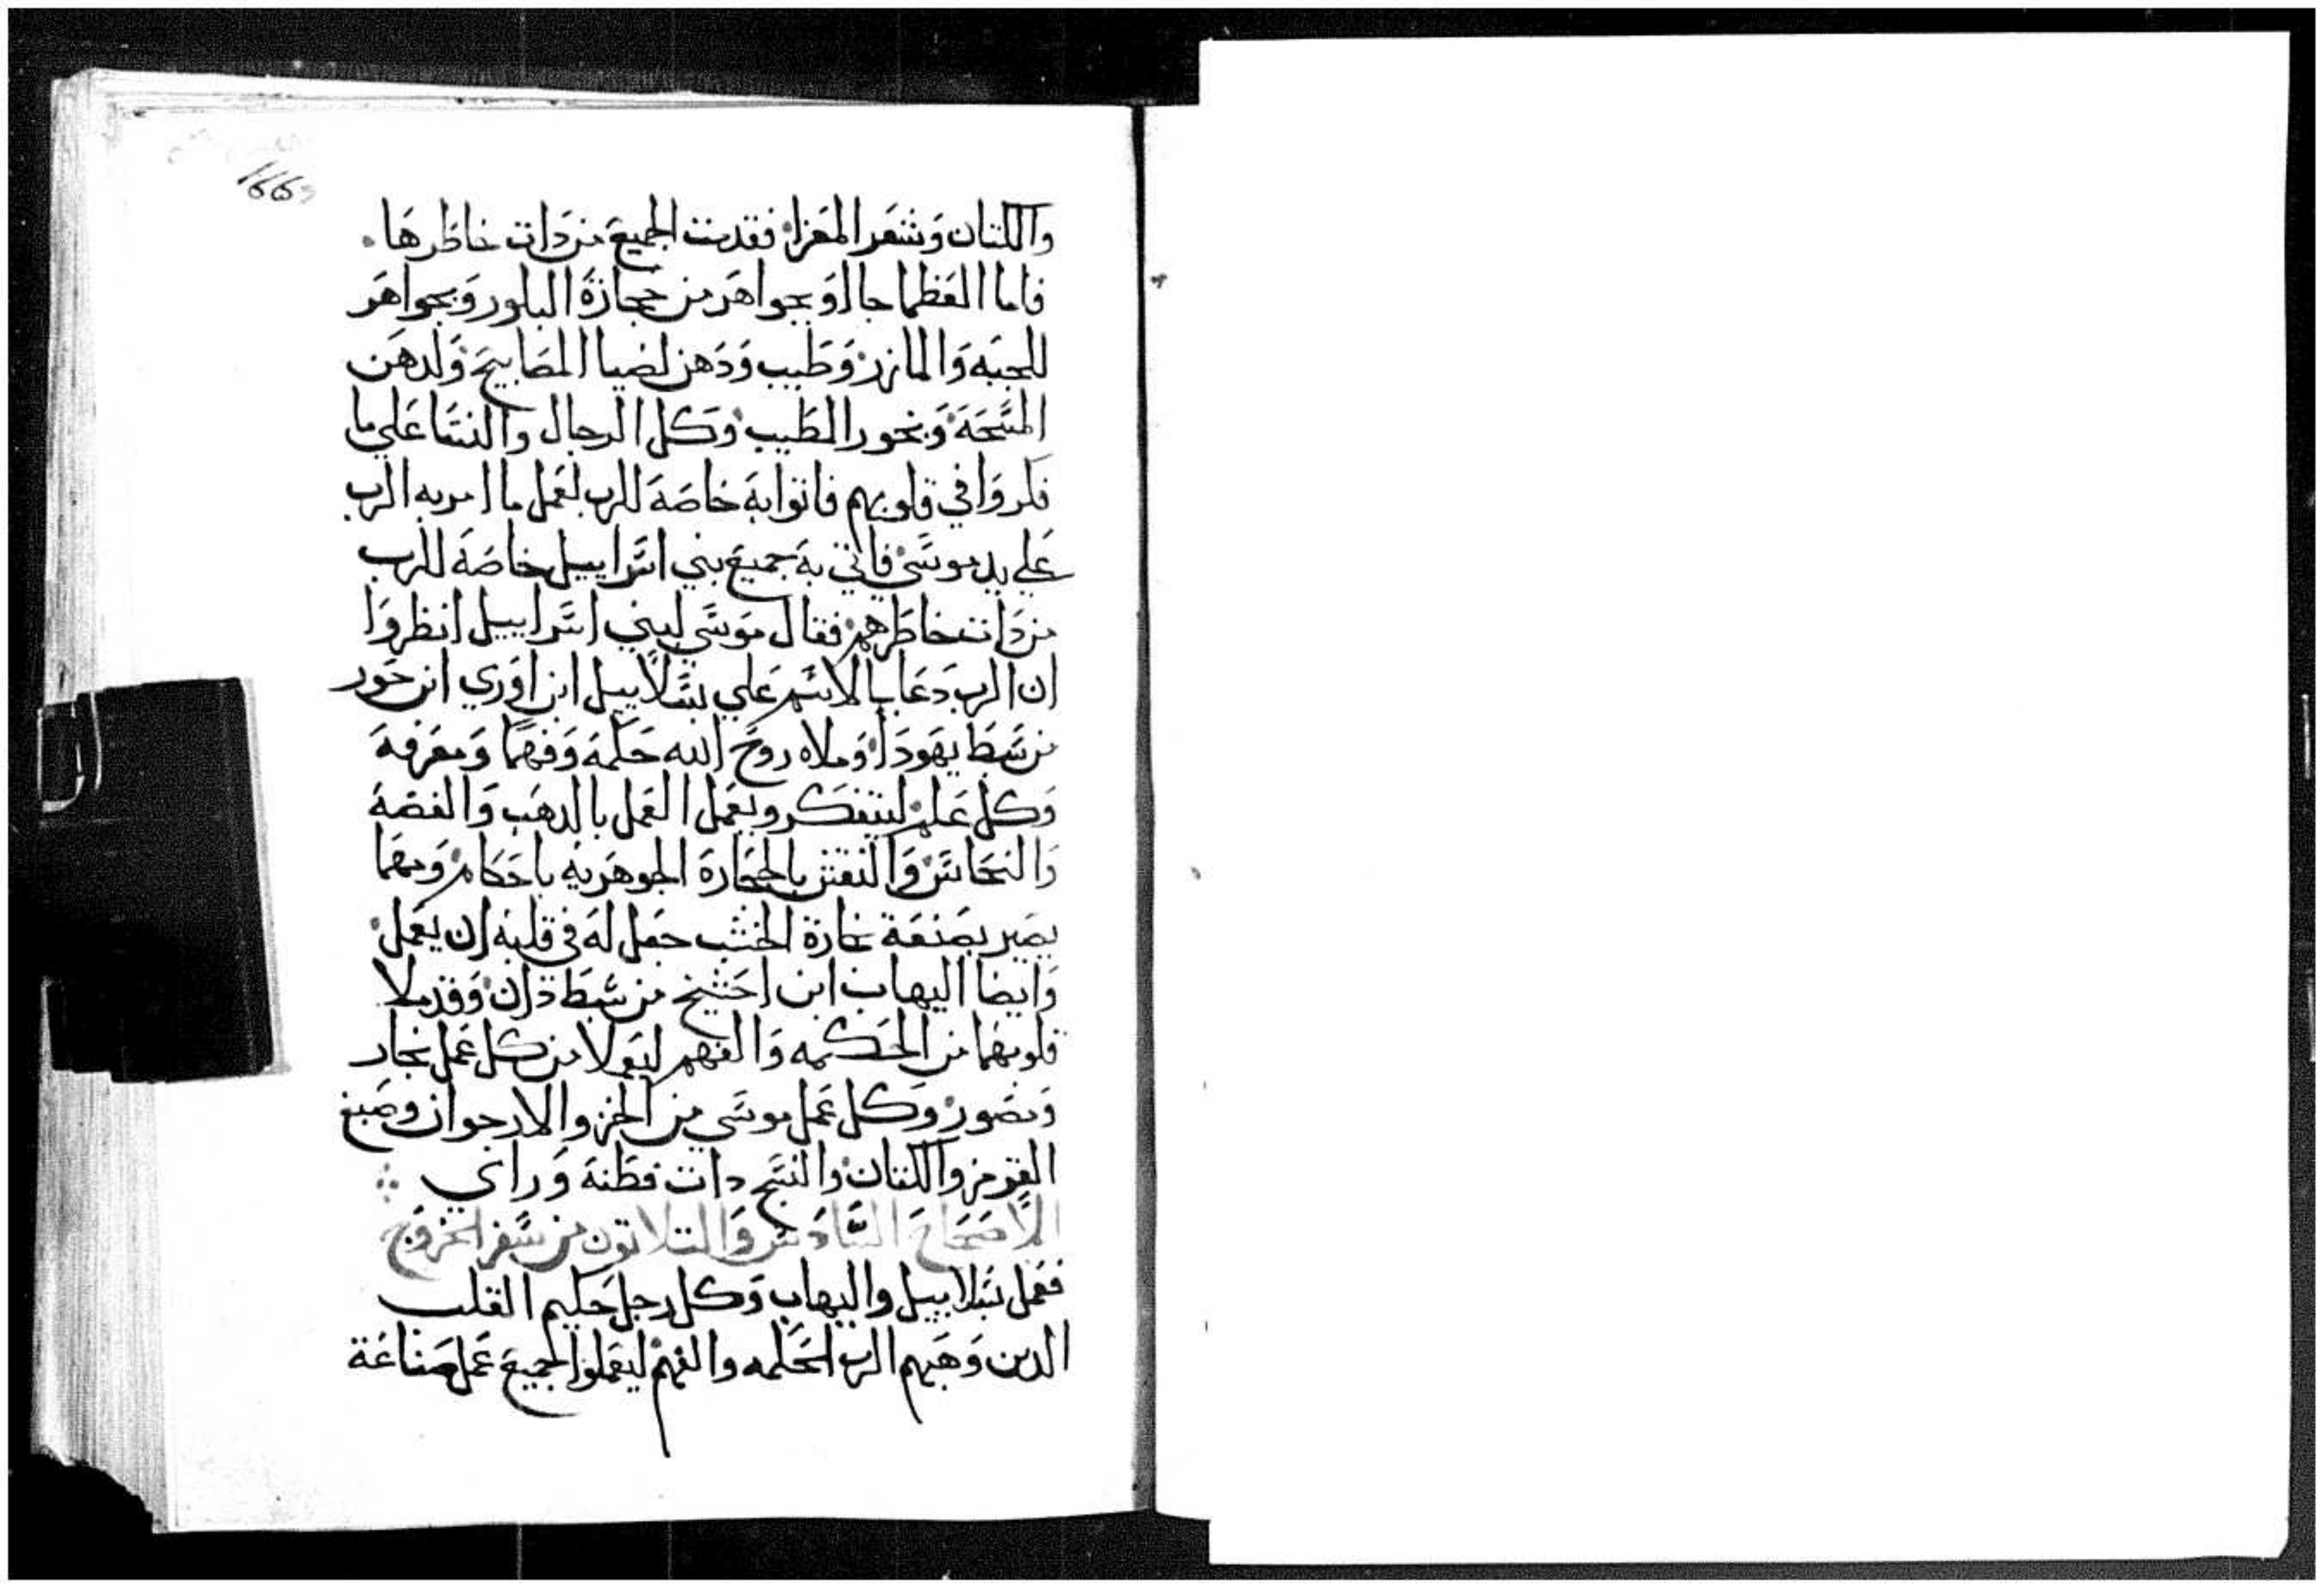 166
والكتان وشعر المعزا. فقدمت الجميع من دات خاطرها.
فاما العظما جاالو بجواهر من حجازة البلور وبجواهر
للجبه والمازر. وطيب ودهن لضيا المصابيح. ولدهن
المسحه. وبخور الطيب. وكل الرجال والنسا على ما
فكروا في قلوبهم فاتوا به خاصه للرب لعمل ما امر به الرب
على يد موسى. فاتي به جميع بني اسراييل خاصه للرب
من دات خاطرهم. فقال موسى لبني اسراييل انظروا
ان الرب دعا بالاسم على بسلاييل ابن اوري ابن حور
من سبط يهودا. وملاه روح الله حكمه وفهما ومعرفه
وكل علم. ليتفكر ويعمل العمل بالدهب والفضه
والنحاس. والنقش بالحجارة الجوهريه باحكام. ومهما
يصير بصنعة نجارة الخشب جعل له في قلبه ان يعمل.
وايضا اليهاب ابن احشيخ من سبط دان. وقد ملا
قلوبهما من الحكمه والفهم ليعملا من كل عمل نجار
ومصور. وكل عمل موسى من الخز والارجوان وصبغ
القرمز والكتان. والنسج دات فطنه وراي
الاصحاح السادس والتلاتون من سفر الخروج
فعمل بسلاييل واليهاب وكل رجل حكيم القلب
الدين وهبهم الرب الحكمه والفهم. ليعملوا الجميع عمل صناعة